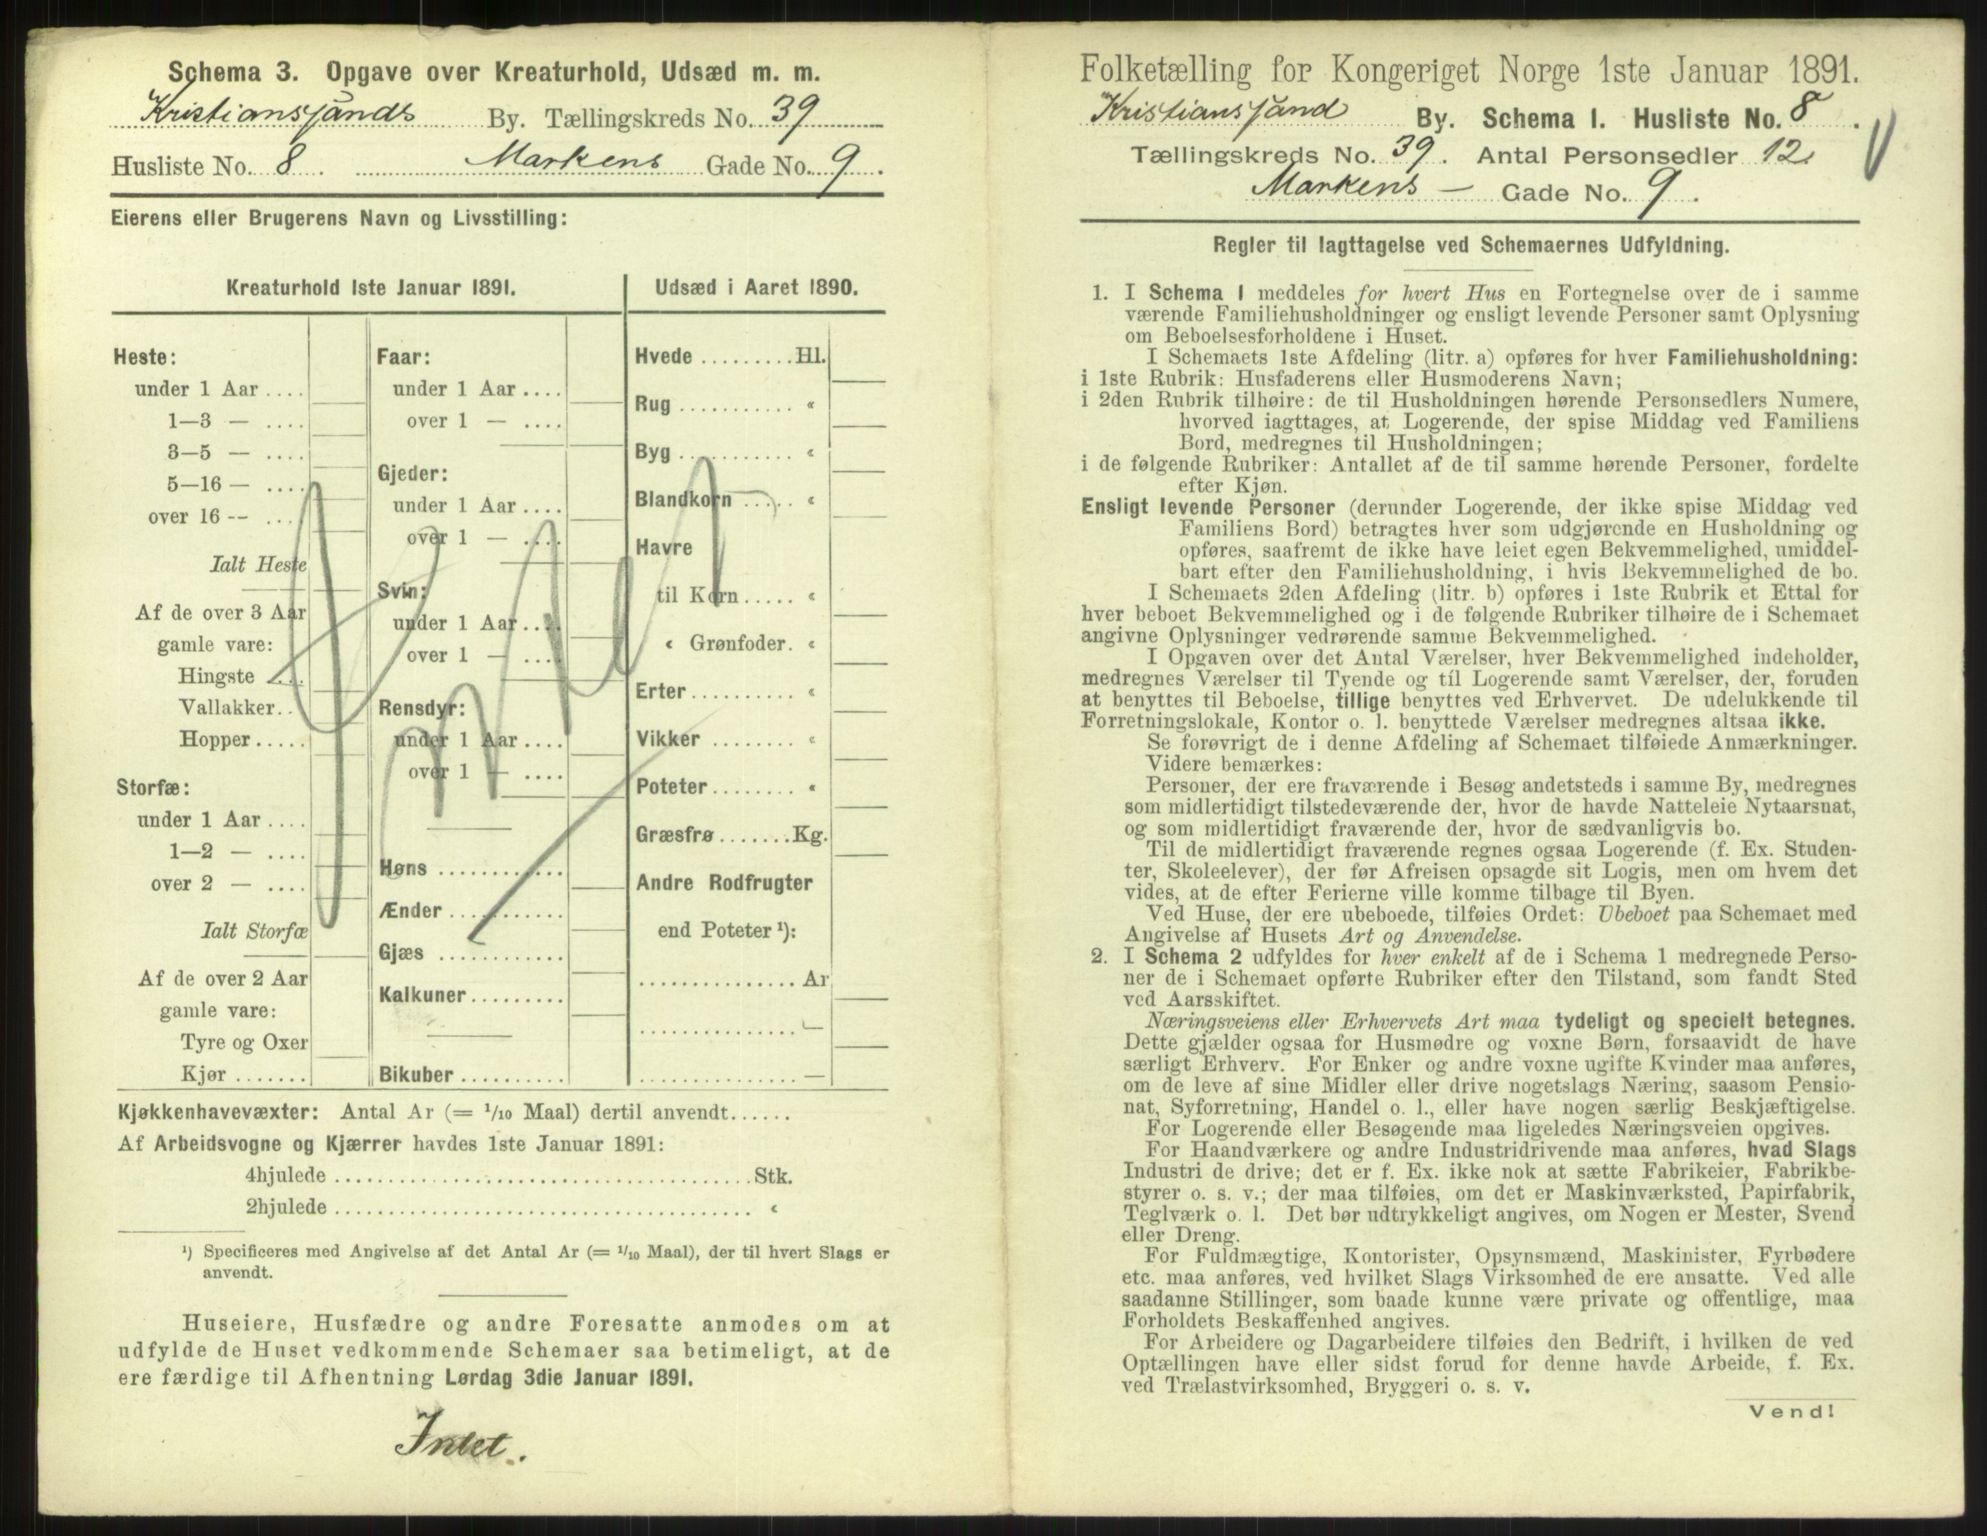 Schema 3. Opgave over Kreaturhold, Udsæd m. m.
Kristianssands By. Tællingskreds No. 39
Husliste No. 8. Markens Gade No. 9.
Eierens eller Brugerens Navn og Livsstilling:
Kreaturhold 1ste Januar 1891.
Heste:
under 1 Aar ....
1—3 — ....
3—5 — ....
5—16 — ....
over 16 — ....
Ialt Heste
Af de over 3 Aar
gamle vare:
Hingste ....
Vallakker..
Hopper.....
Storfæ:
under 1 Aar ....
1—2 — ....
over 2 — ....
Ialt Storfæ
Af de over 2 Aar
gamle vare:
Tyre og Oxer
Kjør .......
Faar:
under 1 Aar ....
over 1 — ....
Gjeder:
under 1 Aar ....
over 1 — ....
Svin:
under 1 Aar ....
over 1 — ....
Rensdyr:
under 1 Aar ....
over 1 — ....
Høns ............
Ænder ...........
Gjæs ............
Kalkuner.........
Bikuber ..........
Udsæd i Aaret 1890.
Hvede .........Hl.
Rug ........... «
Byg ........... «
Blandkorn ..... «
Havre
til Korn ..... «
« Grønfoder. «
Erter.......... «
Vikker ........ «
Poteter........ «
Græsfrø.......Kg.
Andre Rodfrugter
end Poteter ¹):
............... Ar
............... —
............... —
Kjøkkenhavevæxter: Antal Ar (= 1/10 Maal) dertil anvendt......
Af Arbeidsvogne og Kjærrer havdes 1ste Januar 1891:
4hjulede ........................................Stk.
2hjulede ........................................ «
¹) Specificeres med Angivelse af det Antal Ar (= 1/10 Maal), der til hvert Slags er
anvendt.
Huseiere, Husfædre og andre Foresatte anmodes om at
udfylde de Huset vedkommende Schemaer saa betimeligt, at de
ere færdige til Afhentning Lørdag 3die Januar 1891.
Intet.
Folketælling for Kongeriget Norge 1ste Januar 1891.
Kristianssand By. Schema 1. Husliste No. 8.
Tællingskreds No. 39. Antal Personsedler 12.
Markens — Gade No. 9.
Regler til Iagttagelse ved Schemaernes Udfyldning.
1. I Schema 1 meddeles for hvert Hus en Fortegnelse over de i samme
værende Familiehusholdninger og ensligt levende Personer samt Oplysning
om Beboelsesforholdene i Huset.
I Schemaets 1ste Afdeling (litr. a) opføres for hver Familiehusholdning:
i 1ste Rubrik: Husfaderens eller Husmoderens Navn;
i 2den Rubrik tilhøire: de til Husholdningen hørende Personsedlers Numere,
hvorved iagttages, at Logerende, der spise Middag ved Familiens
Bord, medregnes til Husholdningen;
i de følgende Rubriker: Antallet af de til samme hørende Personer, fordelte
efter Kjøn.
Ensligt levende Personer (derunder Logerende, der ikke spise Middag ved
Familiens Bord) betragtes hver som udgjørende en Husholdning og
opføres, saafremt de ikke have leiet egen Bekvemmelighed, umiddel-
bart efter den Familiehusholdning, i hvis Bekvemmelighed de bo.
I Schemaets 2den Afdeling (litr. b) opføres i 1ste Rubrik et Ettal for
hver beboet Bekvemmelighed og i de følgende Rubriker tilhøire de i Schemaet
angivne Oplysninger vedrørende samme Bekvemmelighed.
I Opgaven over det Antal Værelser, hver Bekvemmelighed indeholder,
medregnes Værelser til Tyende og til Logerende samt Værelser, der, foruden
at benyttes til Beboelse, tillige benyttes ved Erhvervet. De udelukkende til
Forretningslokale, Kontor o. l. benyttede Værelser medregnes altsaa ikke.
Se forøvrigt de i denne Afdeling af Schemaet tilføiede Anmærkninger.
Videre bemærkes:
Personer, der ere fraværende i Besøg andetsteds i samme By, medregnes
som midlertidigt tilstedeværende der, hvor de havde Natteleie Nytaarsnat,
og som midlertidigt fraværende der, hvor de sædvanligvis bo.
Til de midlertidigt fraværende regnes ogsaa Logerende (f. Ex. Studen-
ter, Skoleelever), der før Afreisen opsagde sit Logis, men om hvem det
vides, at de efter Ferierne ville komme tilbage til Byen.
Ved Huse, der ere ubeboede, tilføies Ordet: Ubeboet paa Schemaet med
Angivelse af Husets Art og Anvendelse.
2. I Schema 2 udfyldes for hver enkelt af de i Schema 1 medregnede Perso-
ner de i Schemaet opførte Rubriker efter den Tilstand, som fandt Sted
ved Aarsskiftet.
Næringsveiens eller Erhvervets Art maa tydeligt og specielt betegnes.
Dette gjælder ogsaa for Husmødre og voxne Børn, forsaavidt de have
særligt Erhverv. For Enker og andre voxne ugifte Kvinder maa anføres,
om de leve af sine Midler eller drive nogetslags Næring, saasom Pensio-
nat, Syforretning, Handel o. l., eller have nogen særlig Beskjæftigelse.
For Logerende eller Besøgende maa ligeledes Næringsveien opgives.
For Haandværkere og andre Industridrivende maa anføres, hvad Slags
Industri de drive; det er f. Ex. ikke nok at sætte Fabrikeier, Fabrikbe-
styrer o. s. v.; der maa tilføies, om det er Maskinværksted, Papirfabrik,
Teglværk o. l. Det bør udtrykkeligt angives, om Nogen er Mester, Svend
eller Dreng.
For Fuldmægtige, Kontorister, Opsynsmænd, Maskinister, Fyrbødere
etc. maa anføres, ved hvilket Slags Virksomhed de ere ansatte. Ved alle
saadanne Stillinger, som baade kunne være private og offentlige, maa
Forholdets Beskaffenhed angives.
For Arbeidere og Dagarbeidere tilføies den Bedrift, i hvilken de ved
Optællingen have eller sidst forud for denne havde Arbeide, f. Ex.
ved Trælastvirksomhed, Bryggeri o. s. v.
Vend!